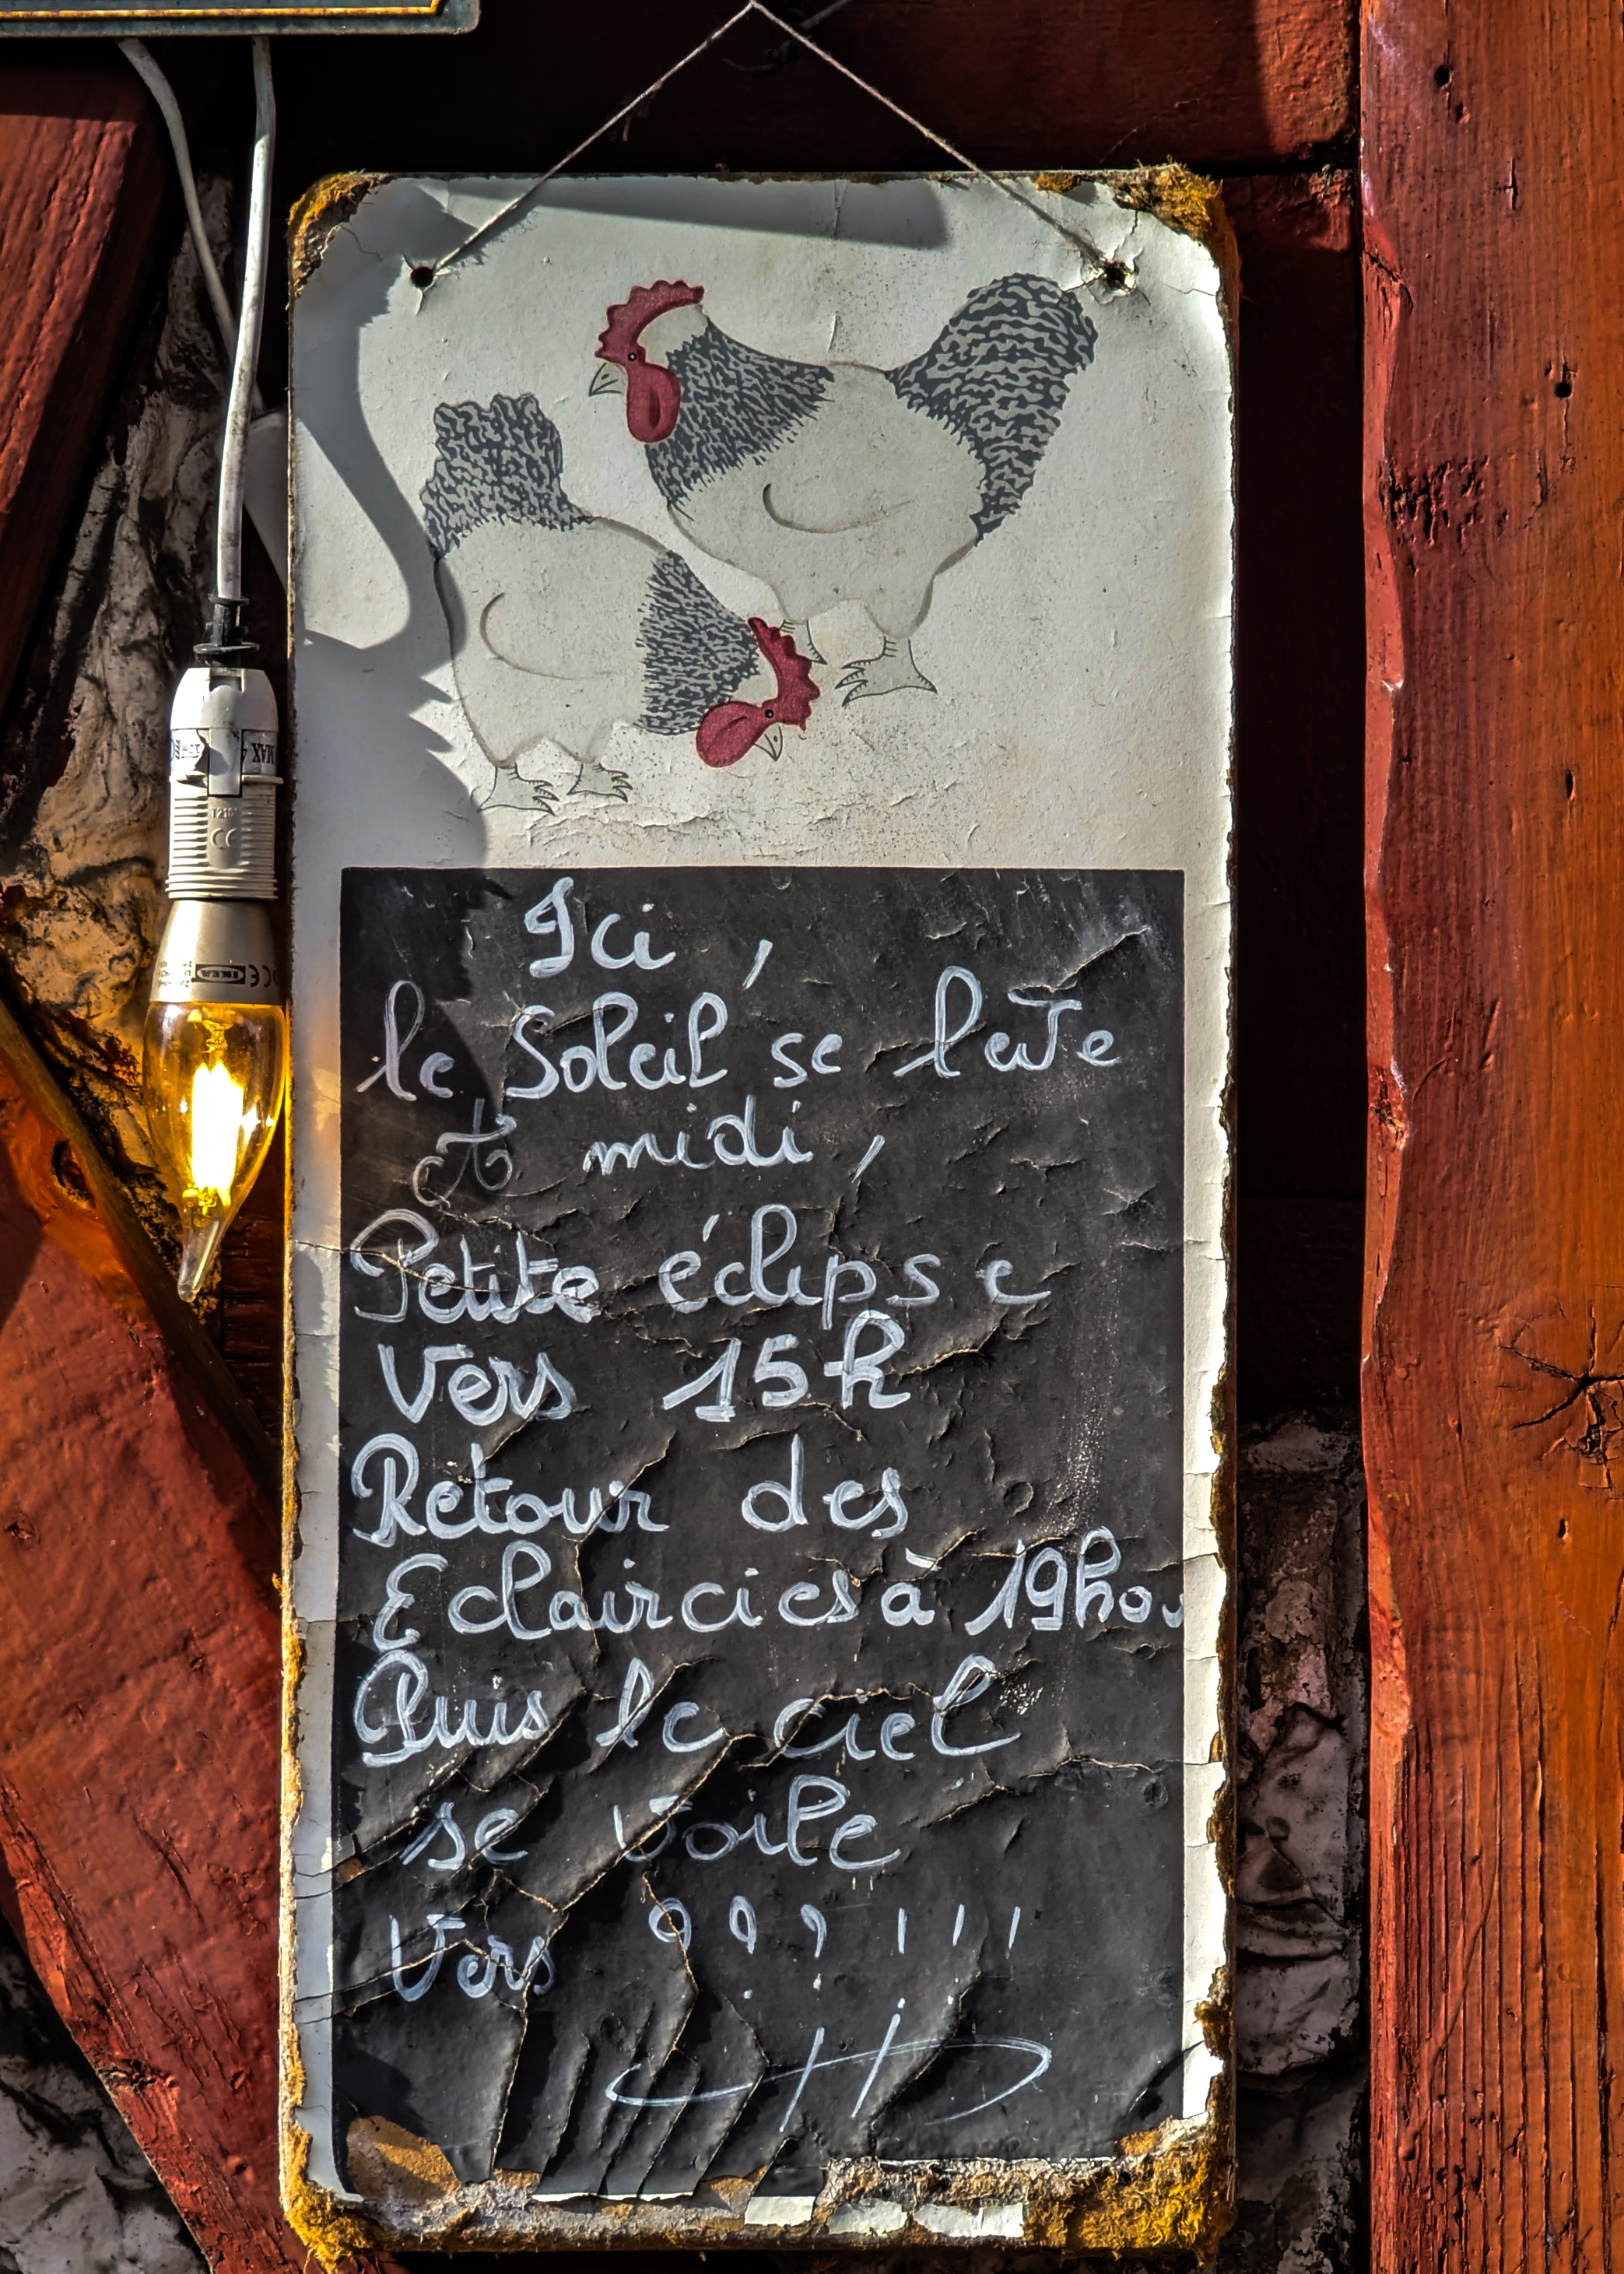 Ici,
le Soleil se lève
à midi,
Petite éclipse
vers 15h
Retour des
Eclaircies à 19h00.
Puis le ciel
se voile
vers ? ? ? ! ! !
MAX
T210
CE
IKEA CE